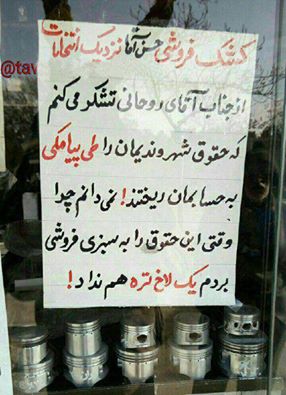 کشک فروشی حسن آقا نزدیک انتخابات
از جناب آقای روحانی تشکر می کنم
که حقوق شهروندیمان را طی پیامکی
به حسابمان ریختند! نمی دانم چرا
وقتی این حقوق را به سبزی فروشی
بردم یک لاخ تره هم نداد!
@tav